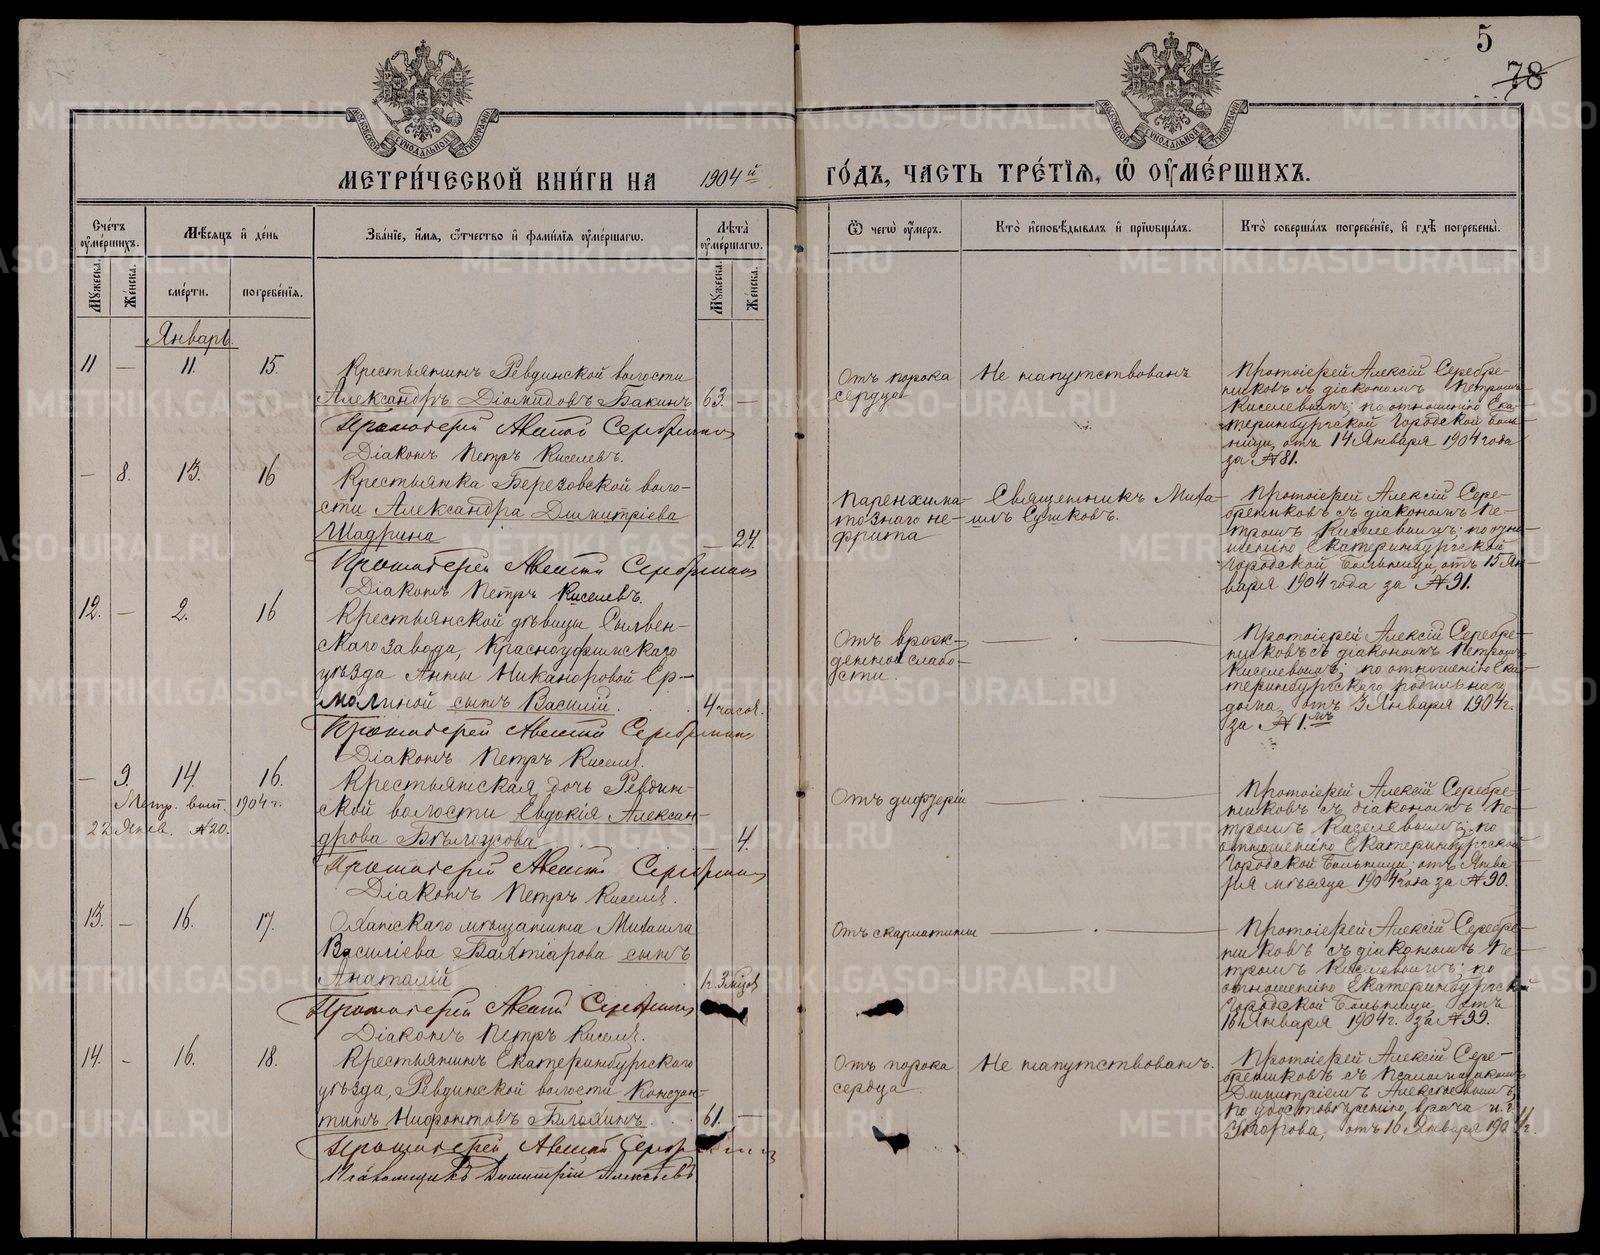 5
78
МЕТРИ́ЧЕСКОЙ КНИ́ГИ НА 1904й ГО́ДЪ, ЧАСТЬ ТРЕ́ТІѦ, Ѡ ОУ҆МЕ́РШИХЪ.
Счетъ оумершихъ.
Мѣсяцъ и день
Званіе, имя, отчество и фамилія оумершагω.
Лѣта оумершагω.
Ѿ чегω оумеръ.
Кто исповѣдывалъ и пріωбщалъ.
Кто совершалъ погребеніе, и гдѣ погребены.
Мужеска.
Женска.
смерти.
погребенія.
Мужеска.
Женска.
Январь.
11 — 11. 15.
Крестьянинъ Ревдинской волости
Александръ Діомидовъ Бакинъ 63. —
Протоіерей Алексій Серебрениковъ
Діаконъ Петръ Киселевъ.
Отъ порока
сердца
Не напутствованъ
Протоіерей Алексій Серебре-
никовъ съ діакономъ Петромъ
Киселевымъ; по отношенію Ека-
теринбургской Городской боль-
ницы отъ 14 Января 1904 года
за № 81.
— 8. 13. 16
Крестьянка Березовской воло-
сти Александра Димитріева
Шадрина — 24.
Протоіерей Алексій Серебрениковъ
Діаконъ Петръ Киселевъ.
Паренхима-
тознаго не-
фрита
Священникъ Миха-
илъ Сушковъ.
Протоіерей Алексій Сере-
брениковъ съ діакономъ Пе-
тромъ Киселевымъ; по отно-
шенію Екатеринбургской
Городской Больницы отъ 15 Ян-
варя 1904 года за № 91.
12. — 2. 16
Крестьянской дѣвицы Сылвен-
скаго завода, Красноуфимскаго
уѣзда Анны Никаноровой Ер-
молиной сынъ Василій. 4 часов.
Протоіерей Алексій Серебрениковъ
Діаконъ Петръ Киселевъ
Отъ врож-
денной слабо-
сти.
Протоіерей Алексій Серебре-
никовъ съ діакономъ Петромъ
Киселевымъ; по отношенію Ека-
теринбургскаго родильнаго
дома отъ 3 Января 1904 г.
за № 1.мъ
— 9. 14. 16.
Метр. вып. 1904 г.
22 Янв. № 20.
Крестьянская дочь Ревдин-
ской волости Евдокія Алексан-
дрова Бѣлоусова — 4.
Протоіерей Алексій Серебрениковъ
Діаконъ Петръ Киселевъ.
Отъ дифтеріи
Протоіерей Алексій Серебре-
никовъ съ діакономъ Пе-
тромъ Киселевымъ; по
отношенію Екатеринбургской
Городской Больницы отъ Янва-
ря мѣсяца 1904 года за № 90.
13. — 16. 17.
Оханскаго мѣщанина Михаила
Василіева Бахтіарова сынъ
Анатолій 1 г. 3 мѣсяц
Протоіерей Алексій Серебрениковъ
Діаконъ Петръ Киселевъ.
Отъ скарлатины
Протоіерей Алексій Серебре-
никовъ съ діакономъ Пе-
тромъ Киселевымъ; по
отношенію Екатеринбургской
Городской Больницы отъ
16 Января 1904 г. за № 99.
14. — 16. 18.
Крестьянинъ Екатеринбургскаго
уѣзда, Ревдинской волости Констан-
тинъ Нифонтовъ 61. —
Протоіерей Алексій
Псаломщикъ Димитрій Алексѣевъ
Отъ порока
сердца
Не напутствованъ.
Протоіерей Алексій Сере-
брениковъ съ псаломщикомъ
Димитріемъ Алексѣевымъ,
по удостовѣренію врача
отъ 16 Января 1904 г.